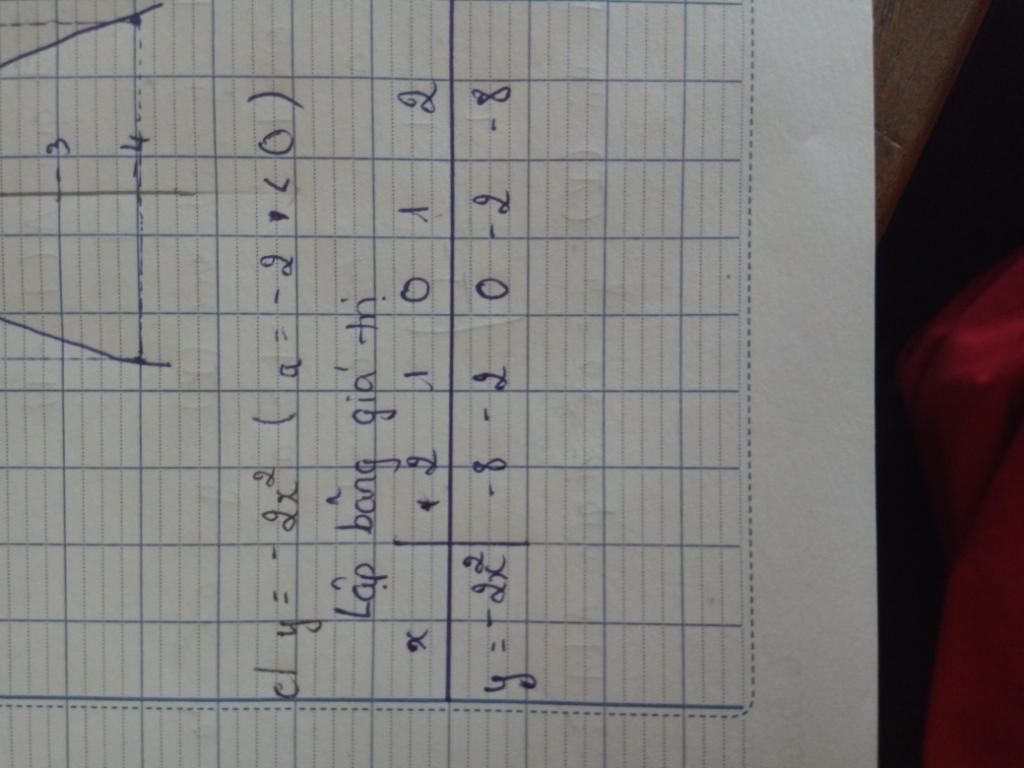 -3
-4
c) y = -2x² ( a = -2 < 0 )
Lập bảng giá trị
x -2 1 0 1 2
y = -2x² -8 -2 0 -2 -8